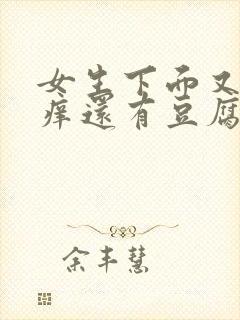 女生下面又
痒还有豆腐
余丰慧